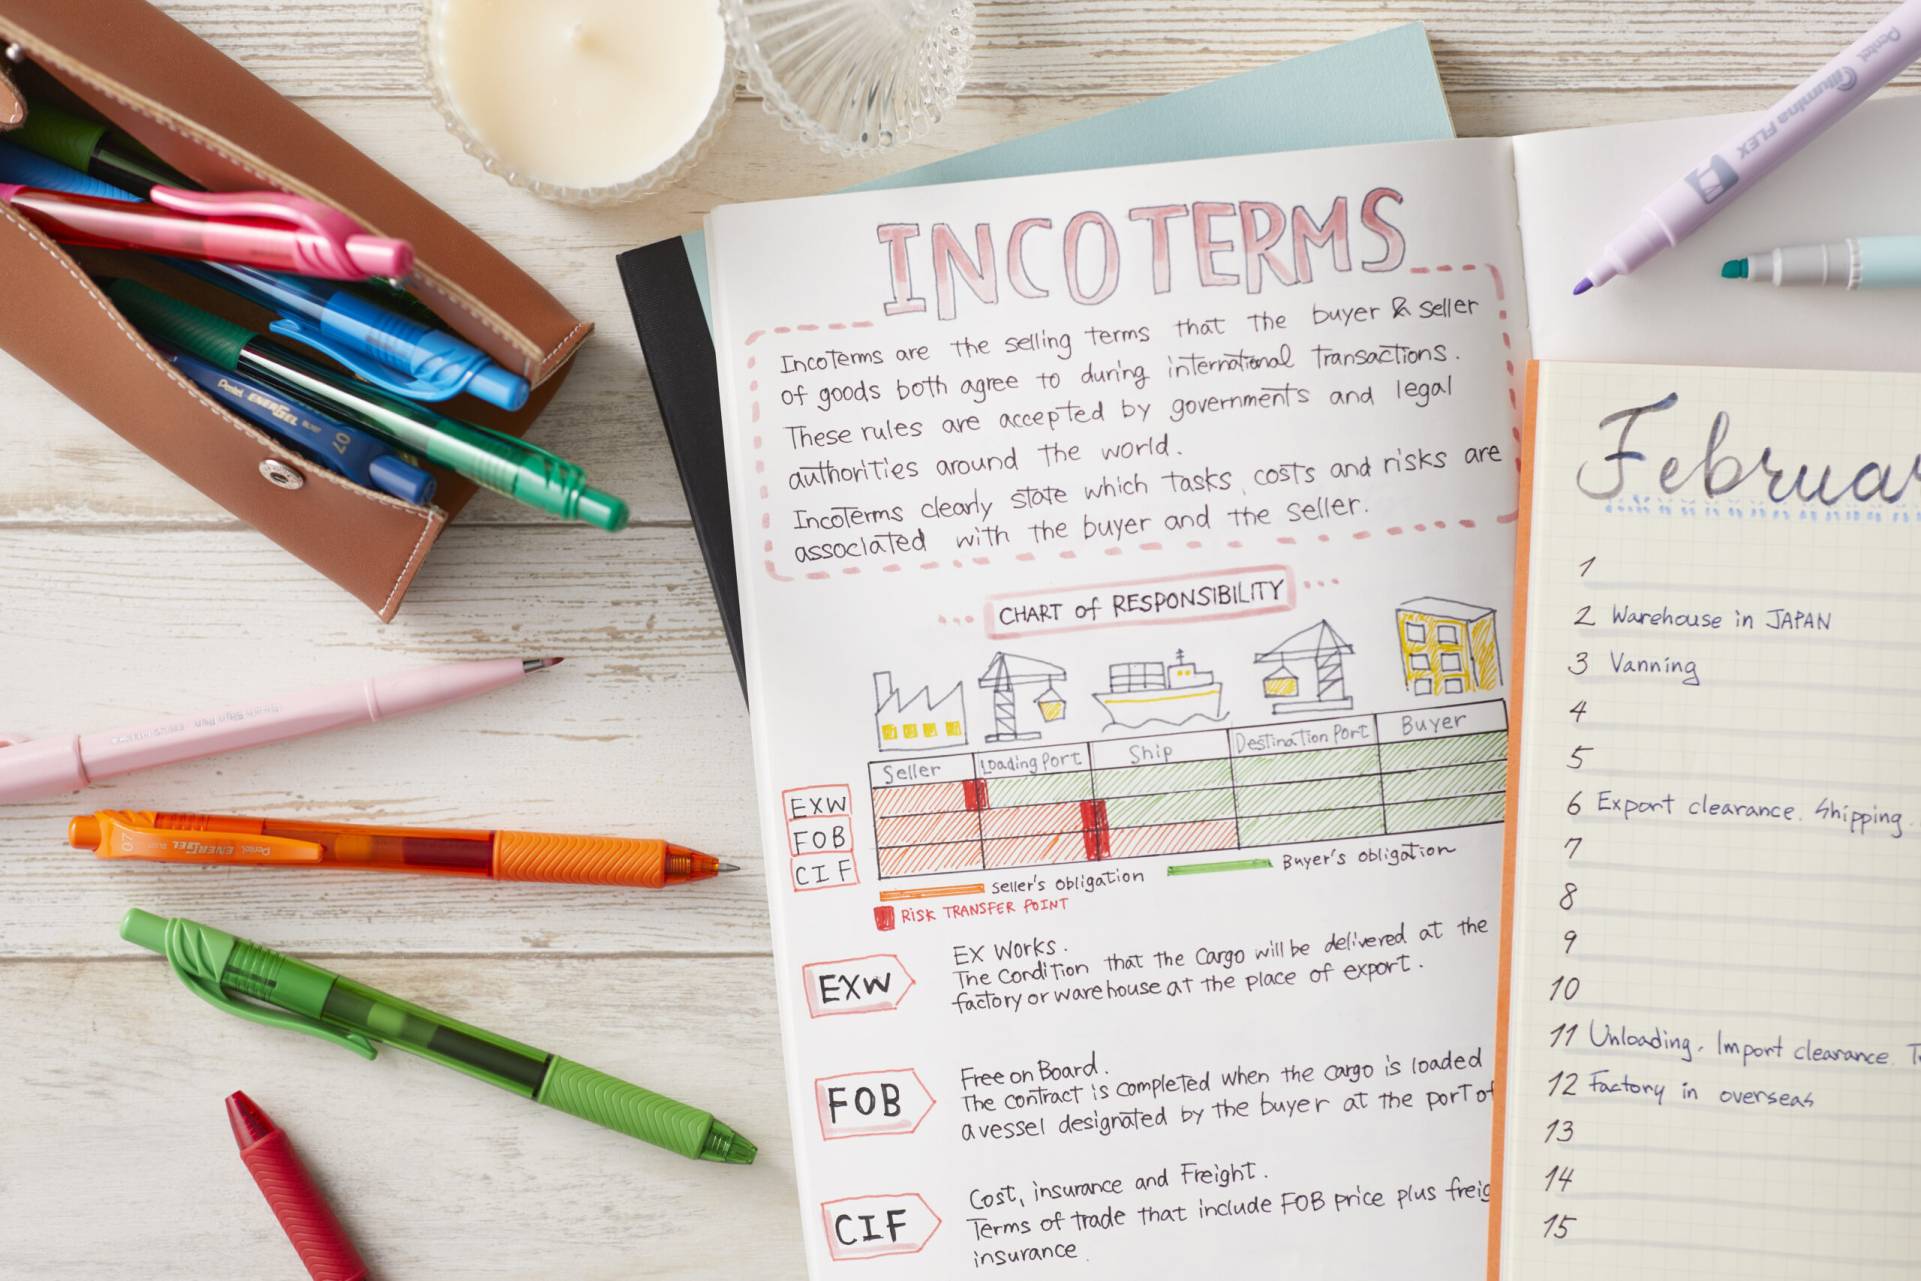 INCOTERMS
Incoterms are the selling terms that the buyer & seller
of goods both agree to during international transactions.
These rules are accepted by governments and legal
authorities around the world.
Incoterms clearly state which tasks, costs and risks are
associated with the buyer and the seller.
CHART of RESPONSIBILITY
Seller Loading Port Ship Destination Port Buyer
EXW
FOB
CIF
Seller's obligation
Buyer's obligation
RISK TRANSFER POINT
EXW
EX Works.
The Condition that the Cargo will be delivered at the
factory or warehouse at the place of export.
FOB
Free on Board.
The contract is completed when the cargo is loaded
a vessel designated by the buyer at the port of
CIF
Cost, insurance and Freight.
Terms of trade that include FOB price plus freig
insurance.
Februar
1
2 Warehouse in JAPAN
3 Vanning
4
5
6 Export clearance. Shipping.
7
8
9
10
11 Unloading. Import clearance. T
12 Factory in overseas
13
14
15
Pentel illumina FLEX
Pentel ENERGEL 07
Pentel ENERGEL 07